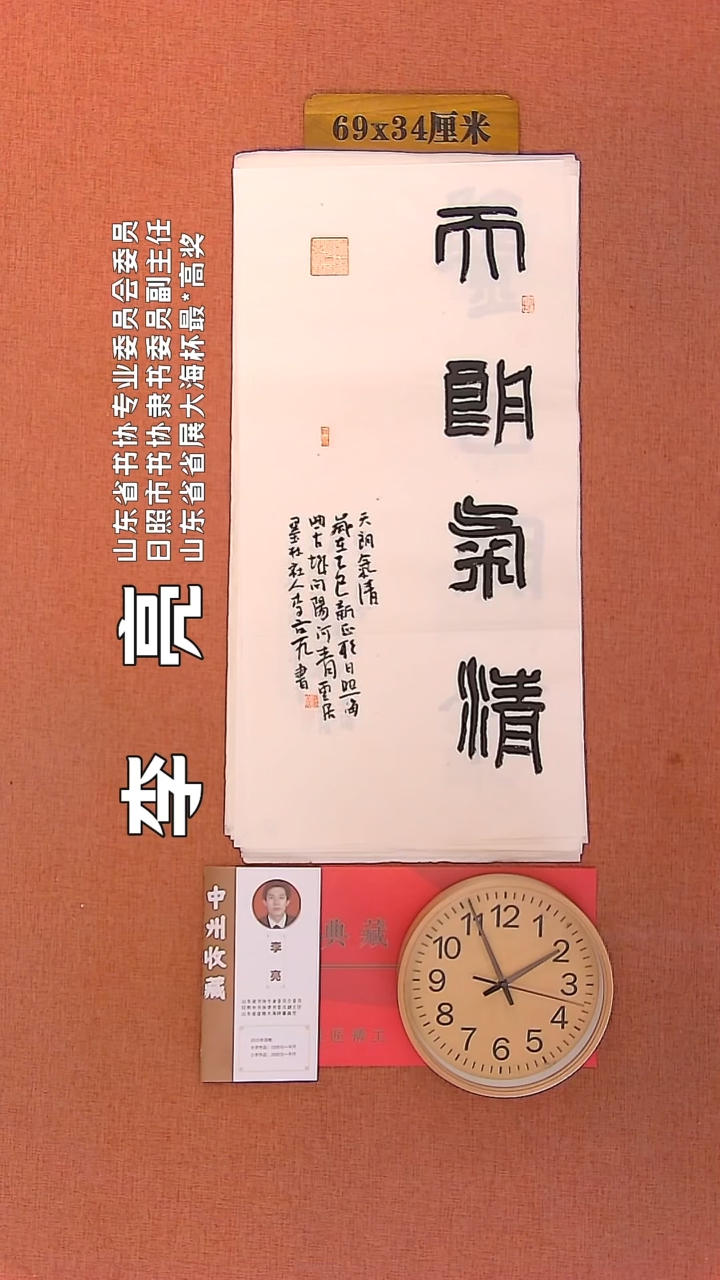 69x34厘米
天朗氣清
天朗氣清
歲在乙巳新正於日照海
曲古城向陽河青雲居
李亮書
山东省书协专业委员会委员
日照市书协隶书委员副主任
山东省省展大海杯最*高奖
李亮
李亮
典藏
12
1
2
3
4
5
6
7
8
9
10
11